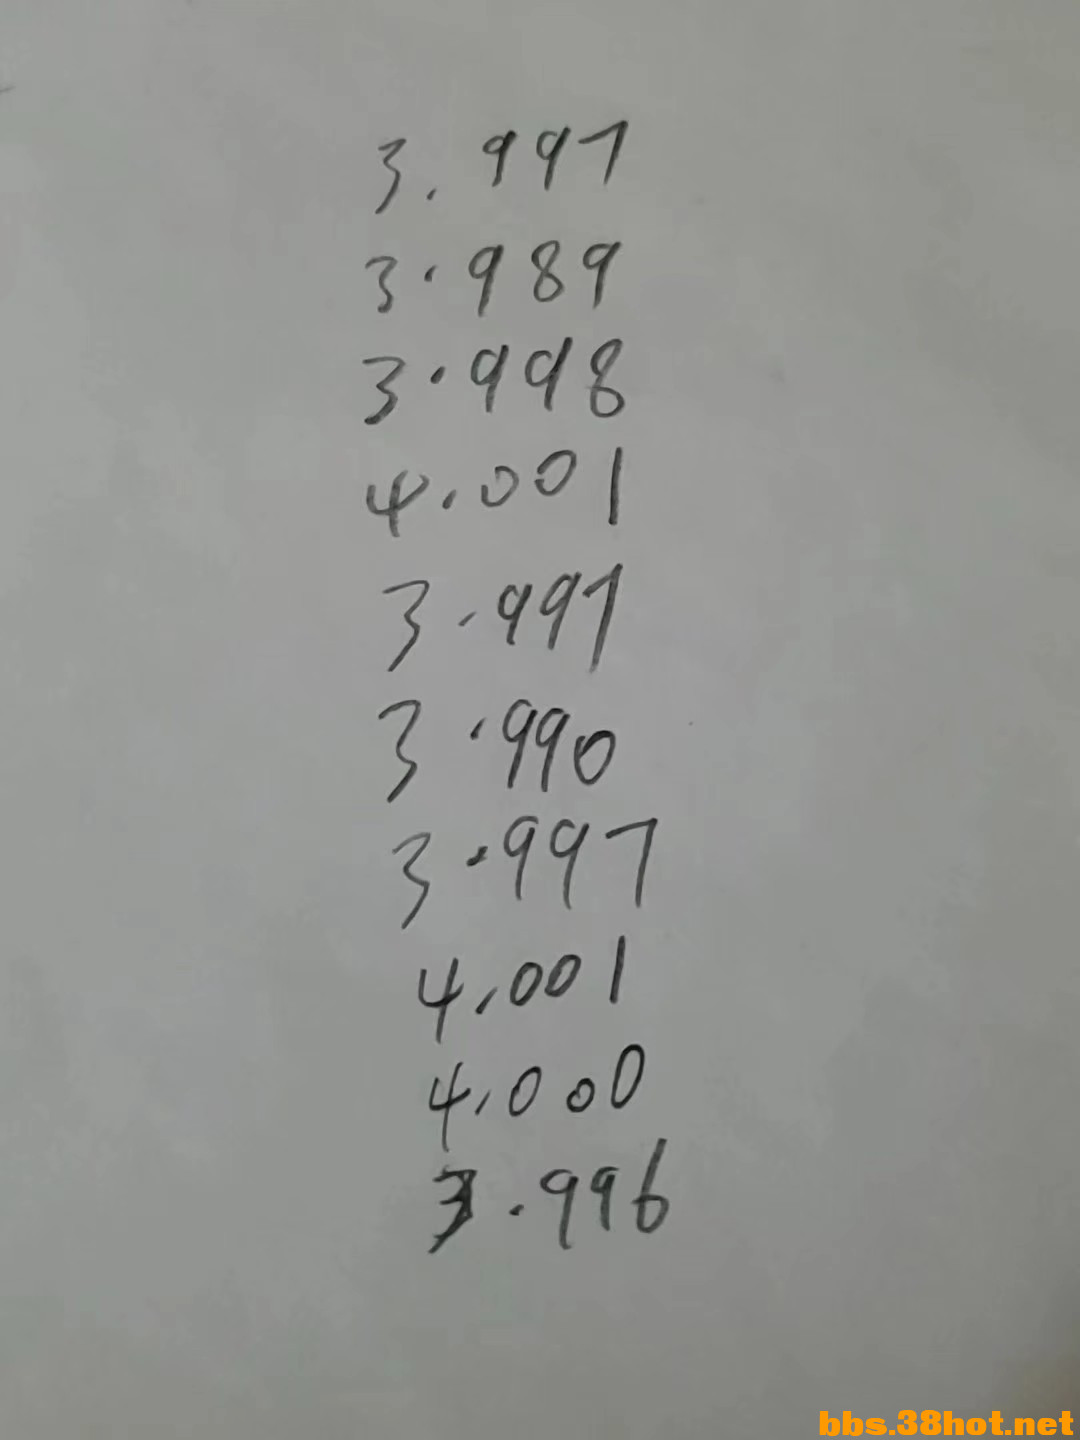 3.997
3.989
3.998
4.001
3.997
3.990
3.997
4.001
4.000
3.996
bbs.38hot.net